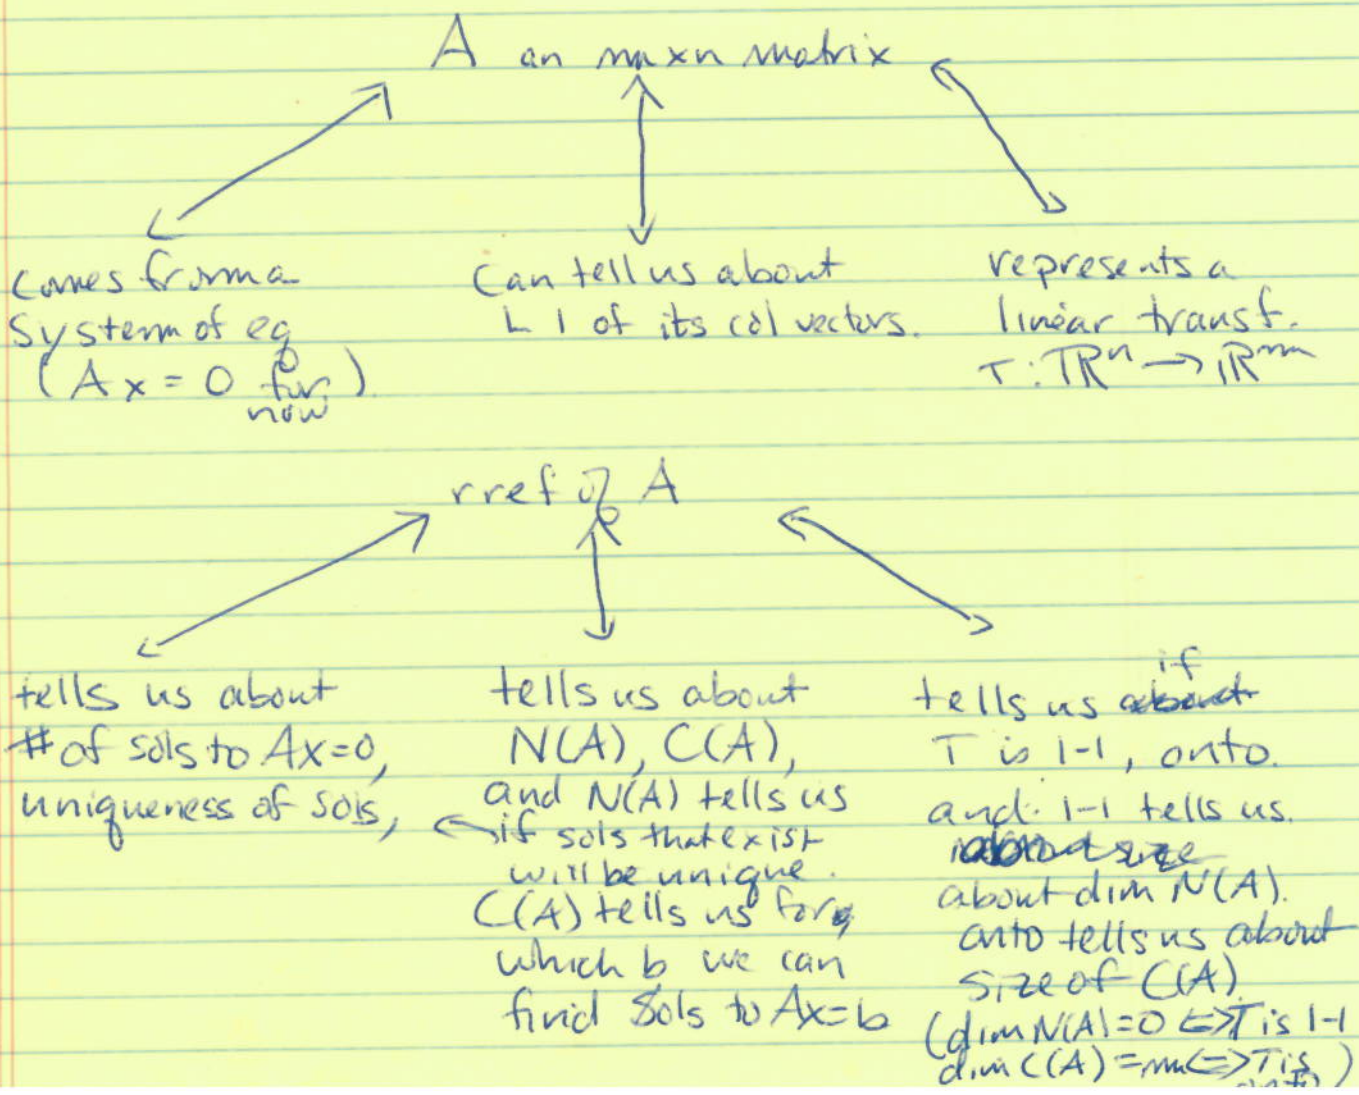 A an mxn matrix
comes from a
system of eq
(Ax = 0 for now)
Can tell us about
L I of its col vectors.
represents a
linear transf.
T: ℝⁿ → ℝᵐ
rref of A
tells us about
# of sols to Ax=0,
uniqueness of sols,
tells us about
N(A), C(A),
and N(A) tells us
if sols that exist
will be unique.
C(A) tells us for
which b we can
find sols to Ax=b
tells us if
T is 1-1, onto.
and 1-1 tells us
about dim N(A).
onto tells us about
size of C(A)
(dim N(A)=0 <=> T is 1-1
dim C(A) = m <=> T is onto)